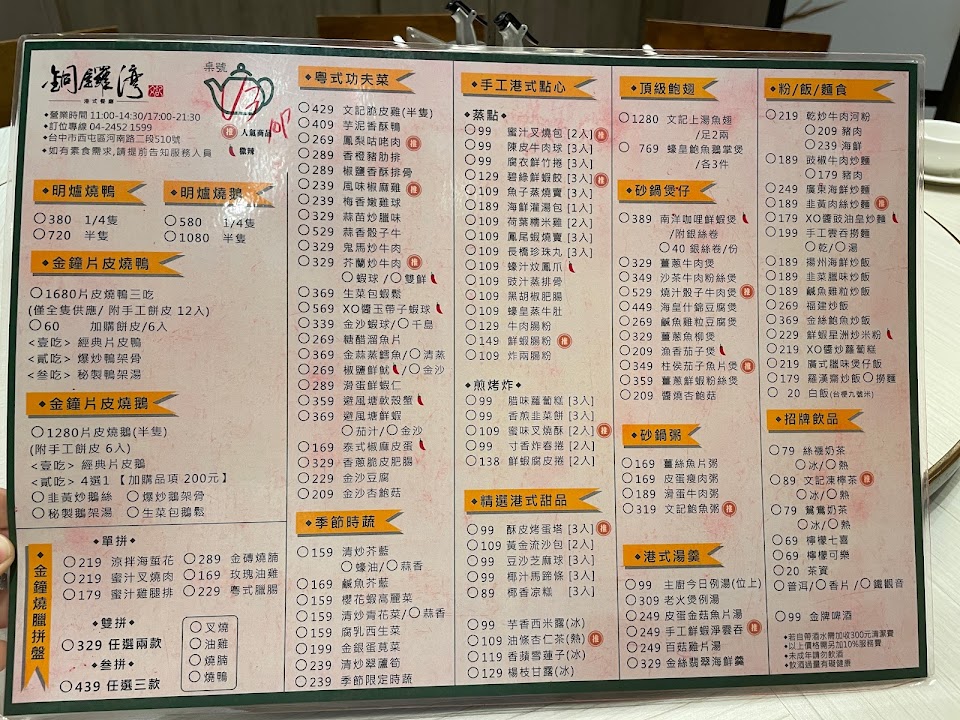 銅鑼灣
港式餐廳
桌號
12
◆營業時間 11:00-14:30/17:00-21:30
◆訂位專線 04-2452 1599
◆台中市西屯區河南路二段510號
◆如有素食需求,請提前告知服務人員
推 人氣商品
微辣
◆明爐燒鴨◆
○380 1/4隻
○720 半隻
◆明爐燒鵝◆
○580 1/4隻
○1080 半隻
◆金鐘片皮燒鴨◆
○1680片皮燒鴨三吃
(僅全隻供應/ 附手工餅皮 12入)
○60 加購餅皮/6入
<壹吃> 經典片皮鴨
<貳吃> 爆炒鴨架骨
<叁吃> 秘製鴨架湯
◆金鐘片皮燒鵝◆
○1280片皮燒鵝(半隻)
(附手工餅皮 6入)
<壹吃> 經典片皮鵝
<貳吃> 4選1【加購品項 200元】
○韭黃炒鵝絲 ○爆炒鵝架骨
○秘製鵝架湯 ○生菜包鵝鬆
◆金鐘燒臘拼盤
◆單拼◆
○219 涼拌海蜇花 ○289 金磚燒腩
○219 蜜汁叉燒肉 ○169 玫瑰油雞
○179 蜜汁雞腿排 ○229 粵式臘腸
◆雙拼◆
○329 任選兩款
◆叁拼◆
○439 任選三款
○叉燒
○油雞
○燒腩
○燒鴨
◆粵式功夫菜◆
○429 文記脆皮雞(半隻)
○409 芋泥香酥鴨
○269 鳳梨咕咾肉 推
○289 香橙豬肋排
○289 椒鹽香酥排骨
○239 風味椒麻雞 推
○239 梅香嫩雞球
○329 蒜苗炒臘味
○529 蒜香骰子牛
○329 鬼馬炒牛肉
○329 芥蘭炒牛肉 推
○蝦球 / ○雙鮮
○369 生菜包蝦鬆
○569 XO醬玉帶子蝦球
○339 金沙蝦球/○千島
○269 糖醋溜魚片
○369 金蒜蒸鱈魚/○清蒸
○269 椒鹽鮮魷/○金沙
○289 滑蛋鮮蝦仁
○359 避風塘軟殼蟹
○369 避風塘鮮蝦
○茄汁/○金沙
○169 泰式椒麻皮蛋
○329 香蔥脆皮肥腸
○229 金沙豆腐
○209 金沙杏鮑菇
◆季節時蔬◆
○159 清炒芥藍
○蠔油/○蒜香
○169 鹹魚芥藍
○159 櫻花蝦高麗菜
○159 清炒青花菜/○蒜香
○159 腐乳西生菜
○199 金銀蛋莧菜
○239 清炒翠蘆筍
○239 季節限定時蔬
◆手工港式點心◆
蒸點◆
○99 蜜汁叉燒包 [2入] 推
○99 陳皮牛肉球 [3入]
○99 腐衣鮮竹捲 [3入]
○129 碧綠鮮蝦餃 [3入] 推
○109 魚子蒸燒賣 [3入]
○189 海鮮灌湯包 [1入]
○109 荷葉糯米雞 [2入]
○109 鳳尾蝦燒賣 [3入]
○109 長橋珍珠丸 [3入]
○109 蠔汁炆鳳爪
○109 豉汁蒸排骨
○109 黑胡椒肥腸
○109 蠔皇蒸牛肚
○129 牛肉腸粉
○149 鮮蝦腸粉 推
○109 炸兩腸粉
◆煎烤炸◆
○99 臘味蘿蔔糕 [3入]
○99 香煎韭菜餅 [3入]
○109 蜜味叉燒酥 [2入] 推
○99 寸香炸春捲 [2入]
○138 鮮蝦腐皮捲 [2入]
◆精選港式甜品◆
○99 酥皮烤蛋塔 [3入] 推
○109 黃金流沙包 [2入]
○99 豆沙芝麻球 [3入]
○99 椰汁馬蹄條 [3入]
○89 椰香凉糕 [3入]
○99 芋香西米露(冰)
○109 油條杏仁茶(熱) 推
○119 香蘋雪蓮子(冰)
○129 楊枝甘露(冰)
◆頂級鮑翅◆
○1280 文記上湯魚翅
/足2兩
○ 769 蠔皇鮑魚鵝掌煲
/各3件
◆砂鍋煲仔◆
○389 南洋咖哩鮮蝦煲
/附銀絲卷
○40 銀絲卷/份
○329 薑蔥牛肉煲
○349 沙茶牛肉粉絲煲
○529 燒汁骰子牛肉煲 推
○449 海皇什錦豆腐煲
○269 鹹魚雞粒豆腐煲
○329 薑蔥魚柳煲
○209 漁香茄子煲
○349 柱侯茄子魚片煲 推
○359 薑蔥鮮蝦粉絲煲
○209 醬燒杏鮑菇
◆砂鍋粥◆
○169 薑絲魚片粥
○169 皮蛋瘦肉粥
○189 滑蛋牛肉粥
○319 文記鮑魚粥 推
◆港式湯羹◆
○99 主廚今日例湯(位上)
○309 老火煲例湯
○249 皮蛋金菇魚片湯
○249 手工鮮蝦淨雲吞 推
○249 百菇雞片湯
○329 金絲翡翠海鮮羹
◆粉/飯/麵食◆
○219 乾炒牛肉河粉
○209 豬肉
○239 海鮮
○189 豉椒牛肉炒麵
○179 豬肉
○249 廣東海鮮炒麵
○189 韭黃肉絲炒麵 推
○179 XO醬豉油皇炒麵
○199 手工雲吞撈麵
○乾/○湯
○189 揚州海鮮炒飯
○189 韭菜臘味炒飯
○189 鹹魚雞粒炒飯
○269 福建炒飯
○369 金絲鮑魚炒飯
○229 鮮蝦星洲炒米粉
○219 XO醬炒蘿蔔糕
○219 廣式臘味煲仔飯
○179 羅漢齋炒飯○撈麵
○ 20 白飯(台梗九號米)
◆招牌飲品◆
○79 絲襪奶茶
○冰/○熱
○89 文記凍檸茶 推
○冰/○熱
○79 鴛鴦奶茶
○冰/○熱
○69 檸檬七喜
○69 檸檬可樂
○20 茶資
○普洱/○香片/○鐵觀音
○99 金牌啤酒
◆若自帶酒水需加收300元清潔費
◆以上價格需另加10%服務費
◆未成年請勿飲酒
◆飲酒過量有礙健康